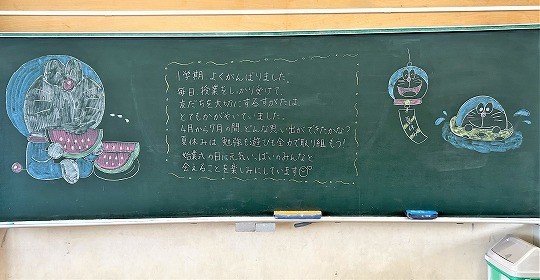 1学期 よくがんばりました。
毎日、授業をしっかり受けて、
友だちを大切にするすがたは
とてもかがやいていました。
4月から7月の間、どんな思い出ができたかな?
夏休みは 勉強も遊びも全力で取り組もう!
始業式の日に元気いっぱいのみんなと
会えることを楽しみにしています